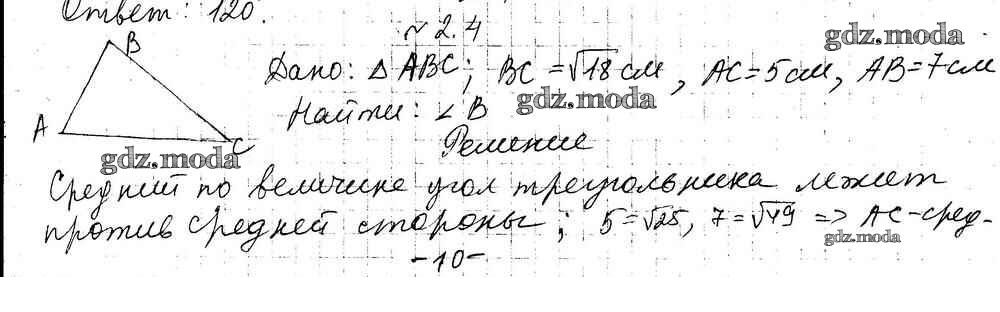 Ответ: 120.
№ 2.4
gdz.moda
B
Дано: △ ABC; BC = √18 см, AC = 5 см, AB = 7 см
gdz.moda
Найти: ∠ B
A
Решение
C
gdz.moda
Средний по величине угол треугольника лежит
против средней стороны; 5 = √25, 7 = √49 => AC-сред-
gdz.moda
-10-